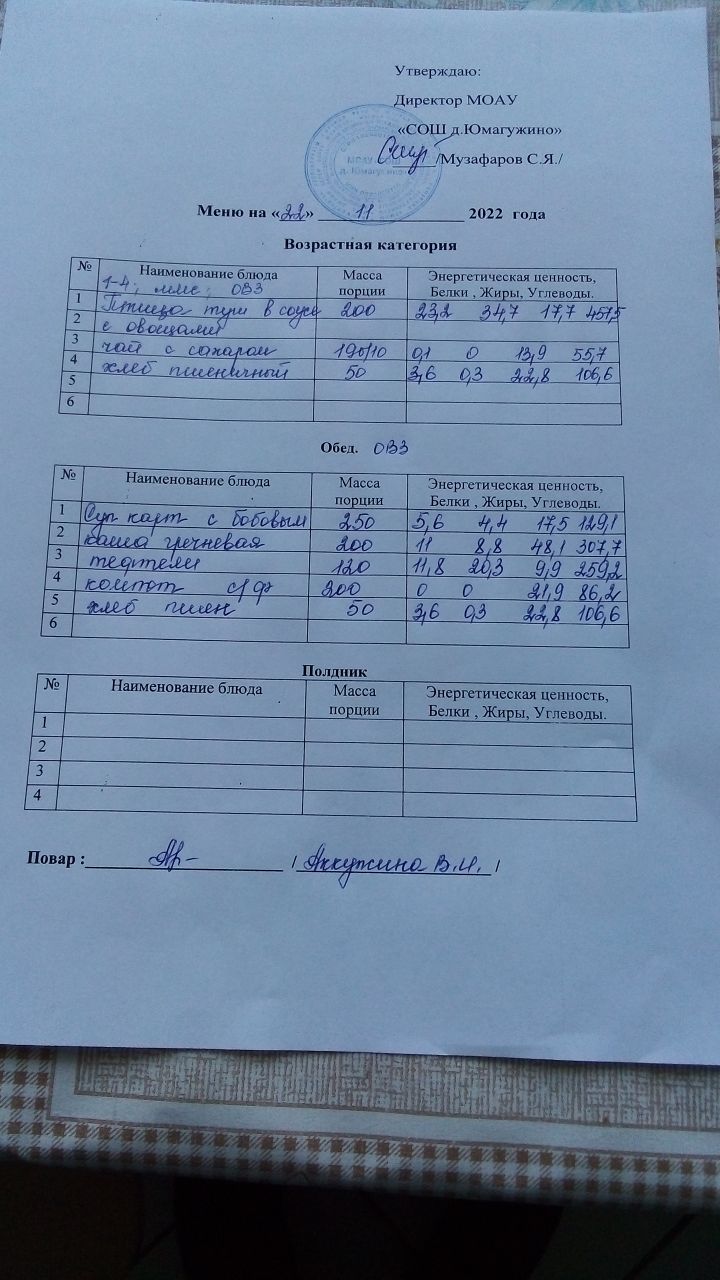 Утверждаю:
Директор МОАУ
«СОШ д.Юмагужино»
/Музафаров С.Я./
МОАУ СОШ
д. Юмагужино
Меню на «22» 11 2022 года
Возрастная категория
№ Наименование блюда Масса порции Энергетическая ценность, Белки , Жиры, Углеводы.
1-4; ммс; ОВЗ
1 Птица туш в соусе 200 23,2 34,7 17,7 457,5
2 с овощами
3 чай с сахаром 190/10 0,1 0 13,9 55,7
4 хлеб пшеничный 50 3,6 0,3 22,8 106,6
5
6
Обед. ОВЗ
№ Наименование блюда Масса порции Энергетическая ценность, Белки , Жиры, Углеводы.
1 Суп карт с бобовым 250 5,6 4,4 17,5 129,1
2 каша гречневая 200 11 8,8 48,1 307,7
3 тефтели 120 11,8 20,3 9,9 259,2
4 компот с/ф 200 0 0 21,9 86,2
5 хлеб пшен 50 3,6 0,3 22,8 106,6
6
Полдник
№ Наименование блюда Масса порции Энергетическая ценность, Белки , Жиры, Углеводы.
1
2
3
4
Повар : / Аккужина В.И. /